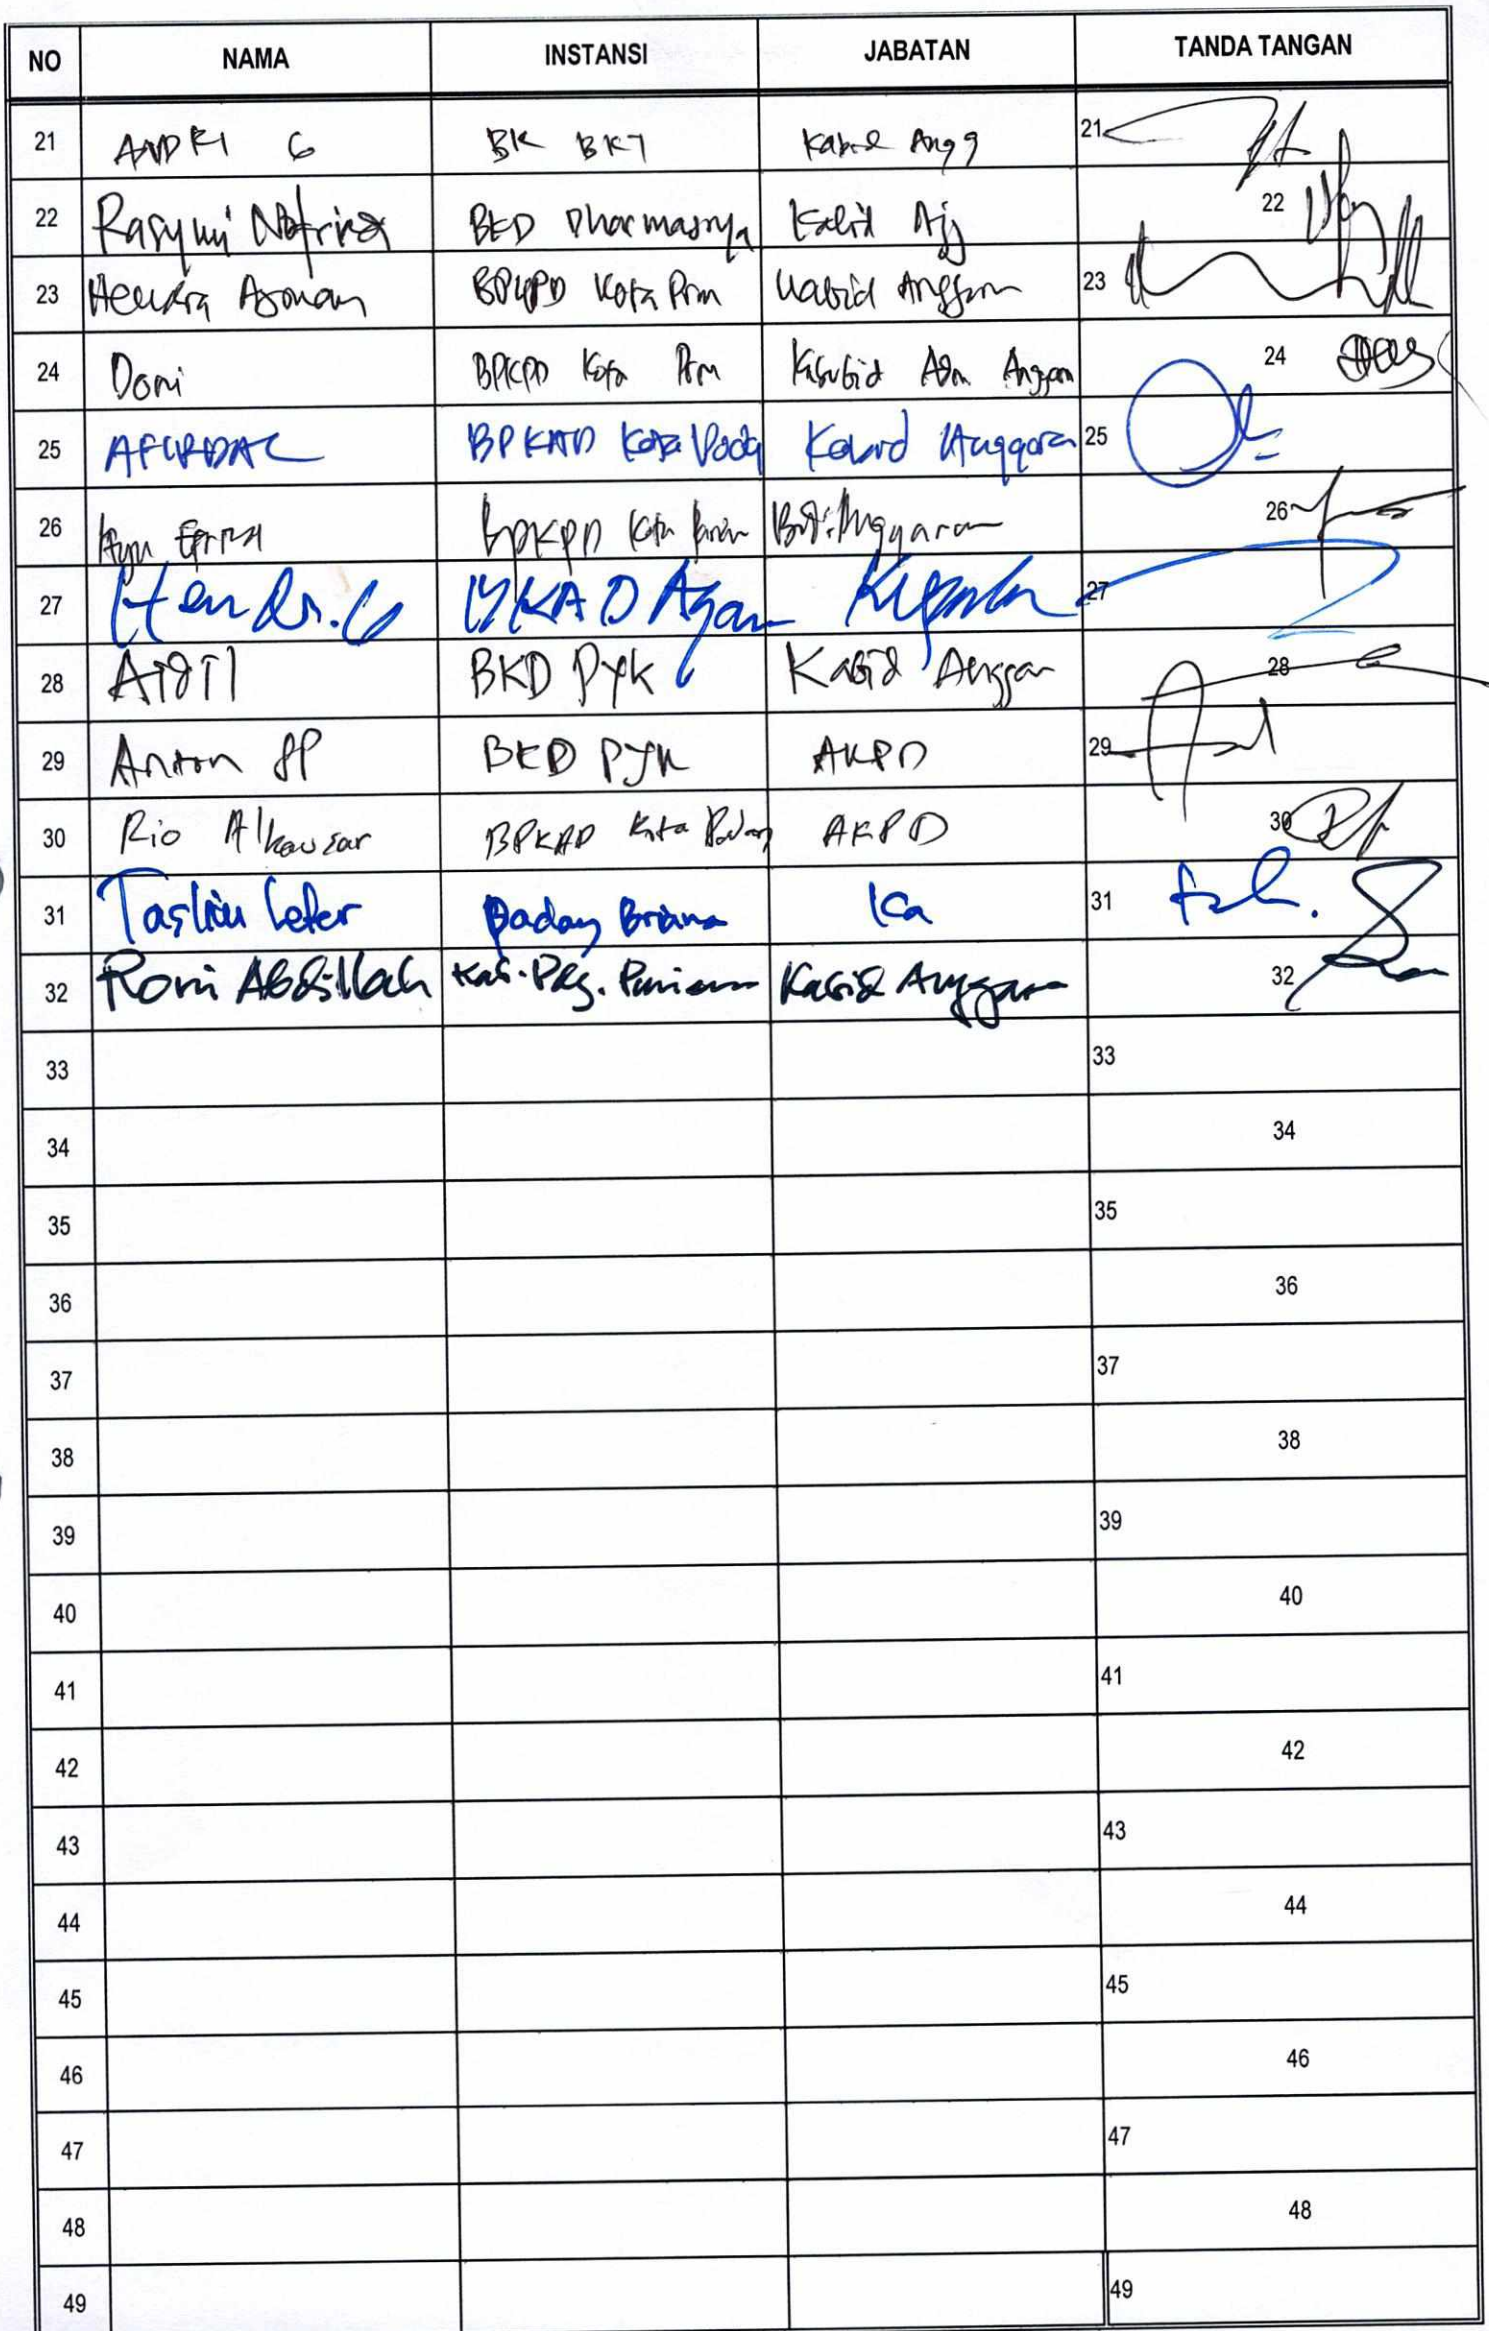 NO NAMA INSTANSI JABATAN TANDA TANGAN
21 ANDRI G BK BKT Kabid Angg 21
22 BKD Dharmasrya Kabid 22
23 Hendra BPKPD Kota Prm Kabid Anggaran 23
24 Doni BPKPD Kota Prm Kasubid Adm Anggran 24
25 BPKAD Kota Kabid Anggaran 25
26 BPKPD Kota Anggaran 26
27 BKAD Agam 27
28 Aidil BKD PYK Kabid Anggaran 28
29 Anton SP BKD PYK AKPD 29
30 Rio Alkausar BPKAD Kota Padang AKPD 30
31 Padang Ka 31
32 Roni Abdillah Kab. Pdg. Pariaman Kabid Anggaran 32
33 33
34 34
35 35
36 36
37 37
38 38
39 39
40 40
41 41
42 42
43 43
44 44
45 45
46 46
47 47
48 48
49 49